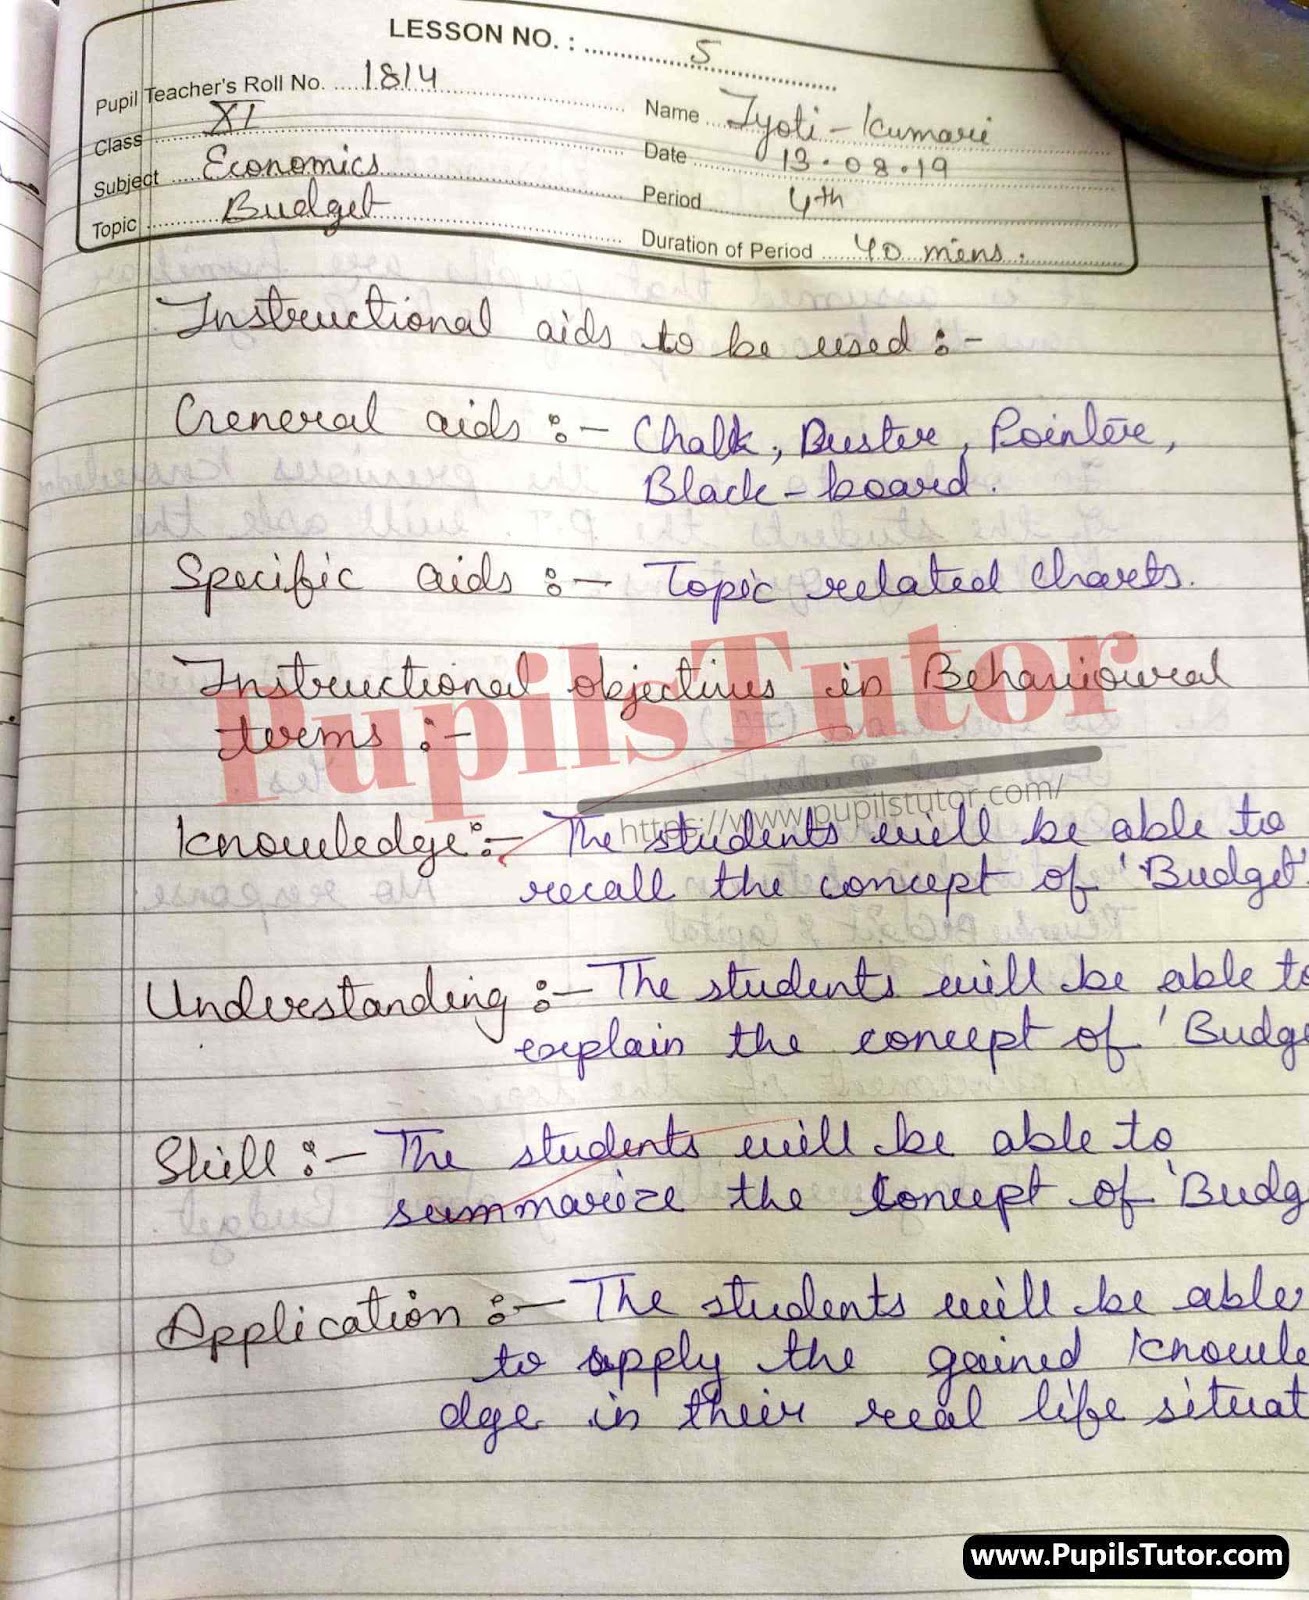 LESSON NO. : 5
Pupil Teacher's Roll No. 1814
Name Jyoti - Kumari
Class XI
Date 13.08.19
Subject Economics
Period 4th
Topic Budget
Duration of Period 40 mins.
Instructional aids to be used :-
General aids :- Chalk, Duster, Pointer,
Black-board.
Specific aids :- Topic related charts.
Instructional objectives in Behavioural
terms :-
PupilsTutor
https://www.pupilstutor.com/
Knowledge :- The students will be able to
recall the concept of 'Budget'
Understanding :- The students will be able to
explain the concept of 'Budge
Skill :- The students will be able to
summarize the concept of 'Budg
Application :- The students will be able
to apply the gained knowle
dge in their real life situat
www.PupilsTutor.com